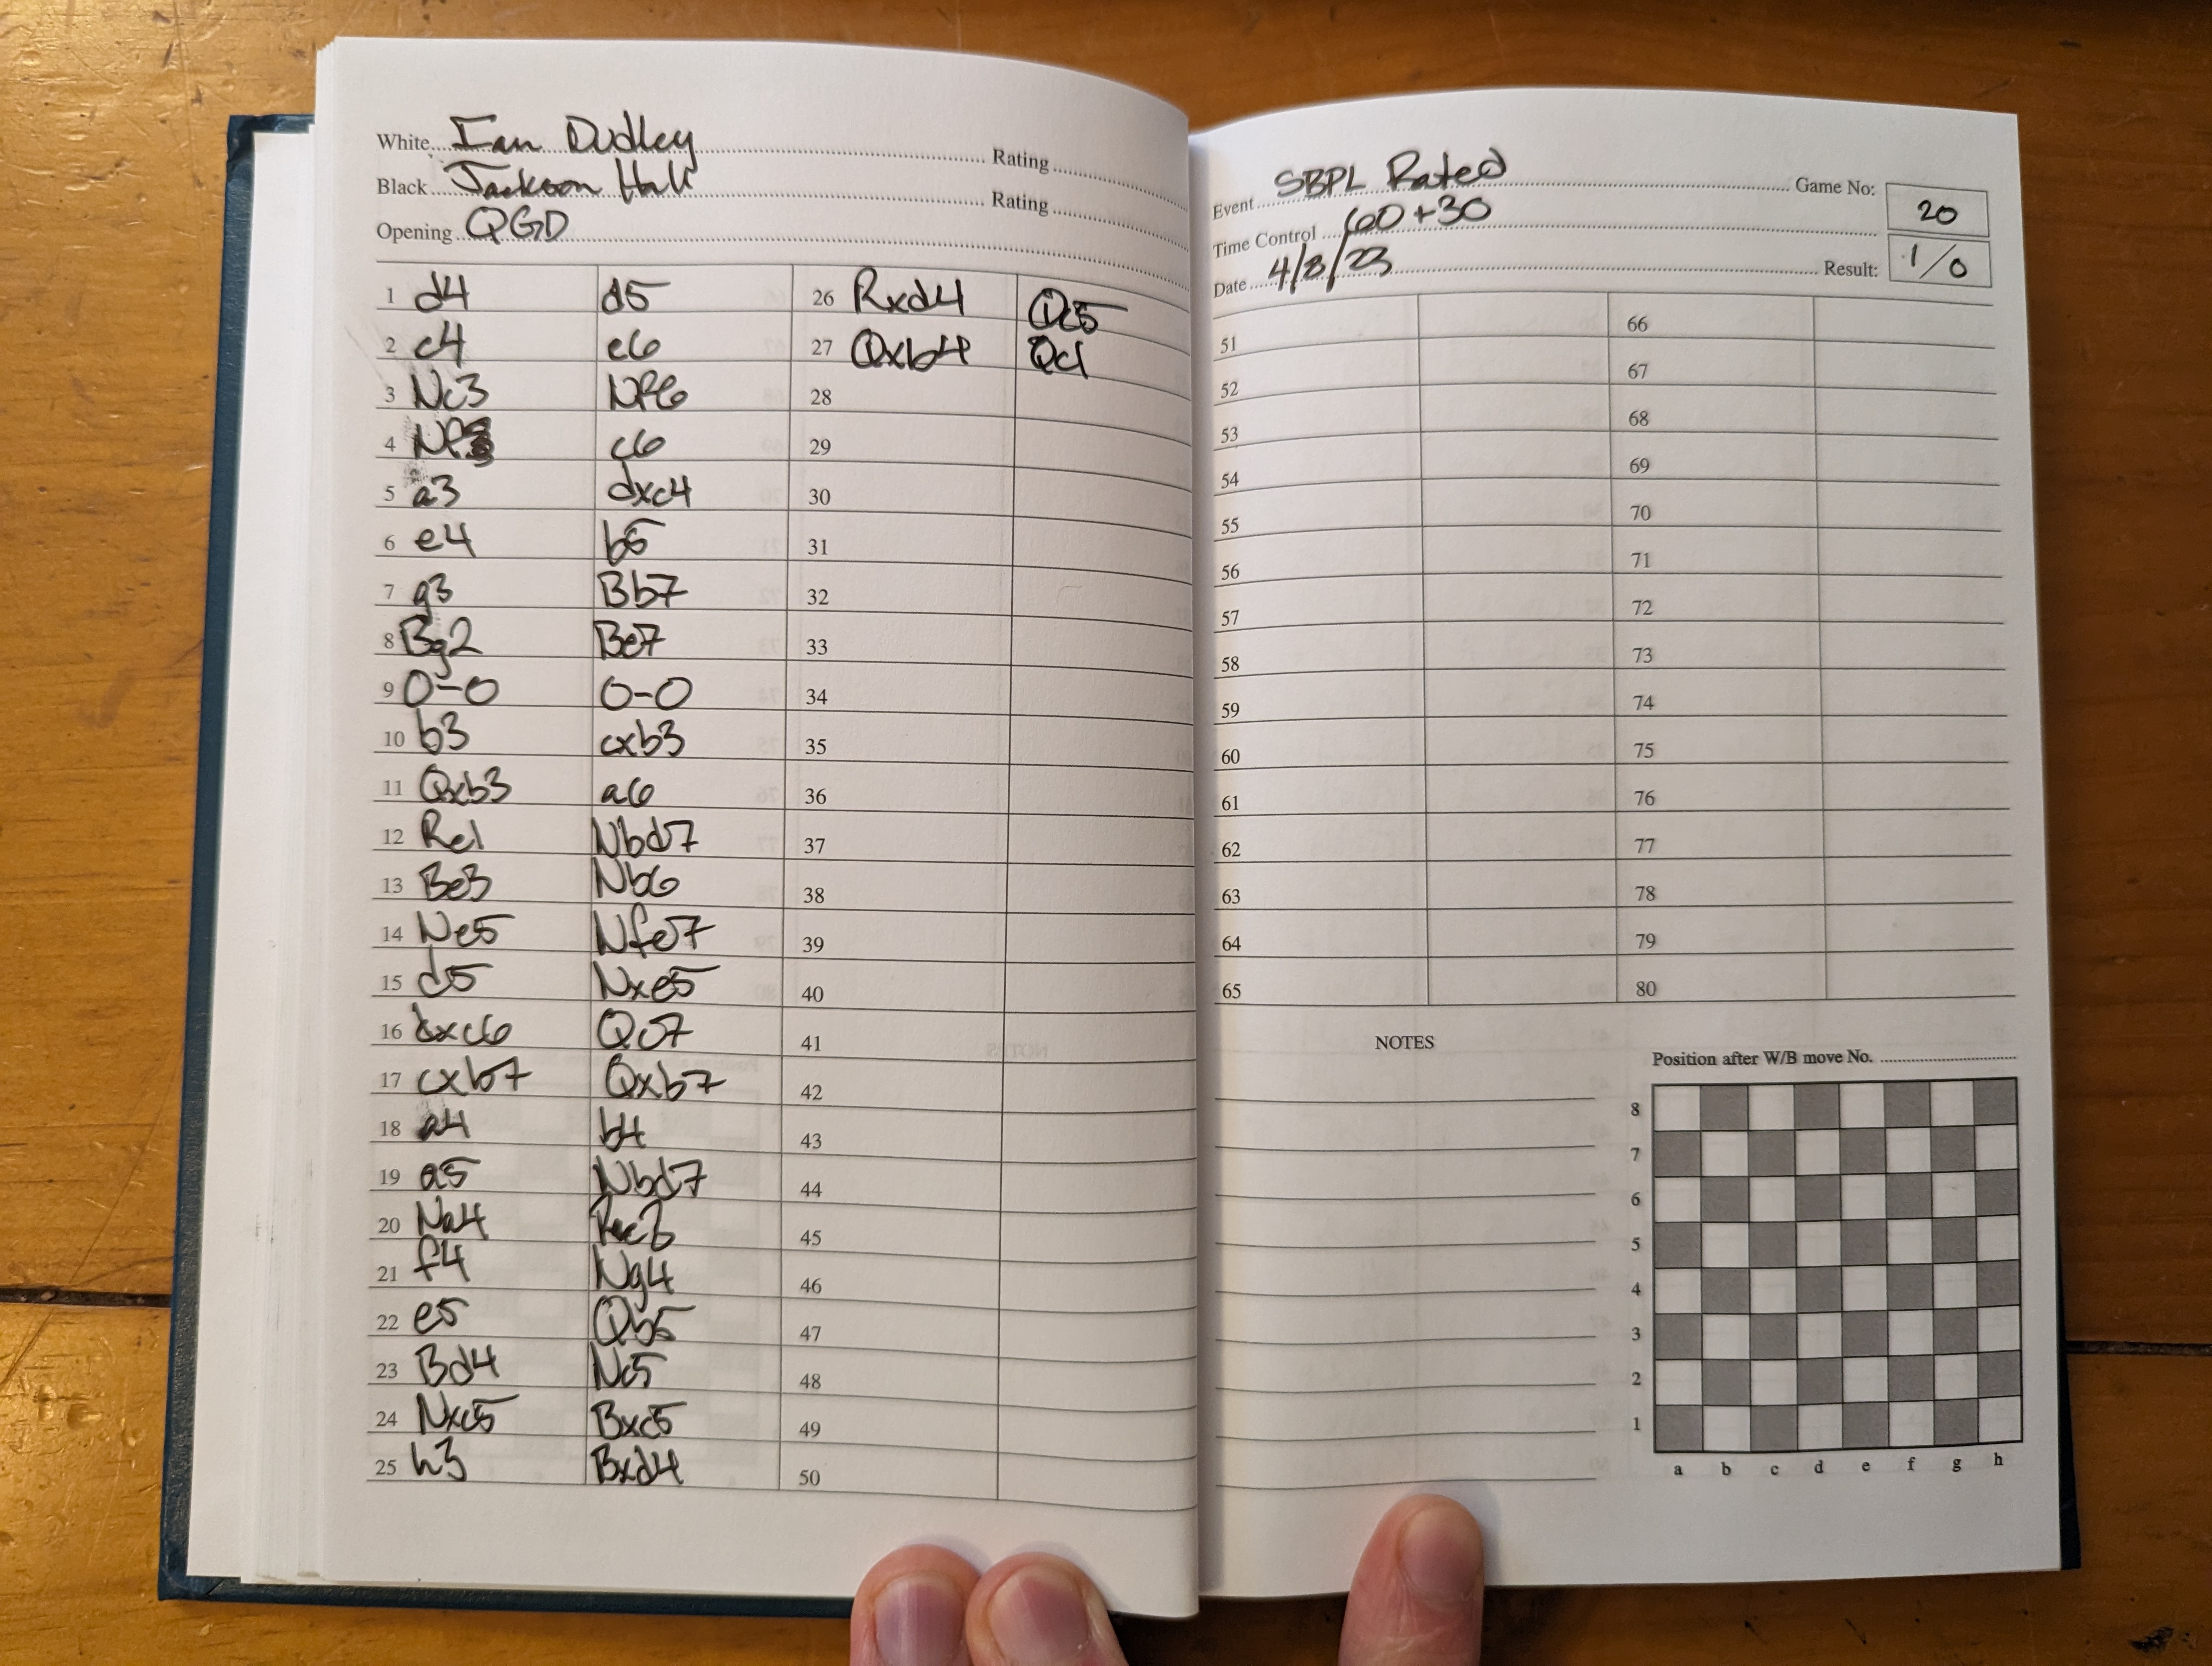 White Ian Dudley Rating
Black Jackson Hall Rating
Opening QGD
1 d4 d5 26 Rxd4 Qc5
2 c4 e6 27 Qxb4 Qc1
3 Nc3 Nf6 28
4 Nf3 c6 29
5 a3 dxc4 30
6 e4 b5 31
7 g3 Bb7 32
8 Bg2 Be7 33
9 0-0 0-0 34
10 b3 cxb3 35
11 Qxb3 a6 36
12 Rd1 Nbd7 37
13 Be3 Nb6 38
14 Ne5 Nfd7 39
15 d5 Nxe5 40
16 dxc6 Qc7 41
17 cxb7 Qxb7 42
18 a4 b4 43
19 a5 Nbd7 44
20 Na4 45
21 f4 Ng4 46
22 e5 Qb5 47
23 Bd4 Nc5 48
24 Nxc5 Bxc5 49
25 h3 Bxd4 50
Event SBPL Rated Game No: 20
Time Control 60+30
Date 4/8/23 Result: 1/0
51 66
52 67
53 68
54 69
55 70
56 71
57 72
58 73
59 74
60 75
61 76
62 77
63 78
64 79
65 80
NOTES
Position after W/B move No.
8
7
6
5
4
3
2
1
a b c d e f g h